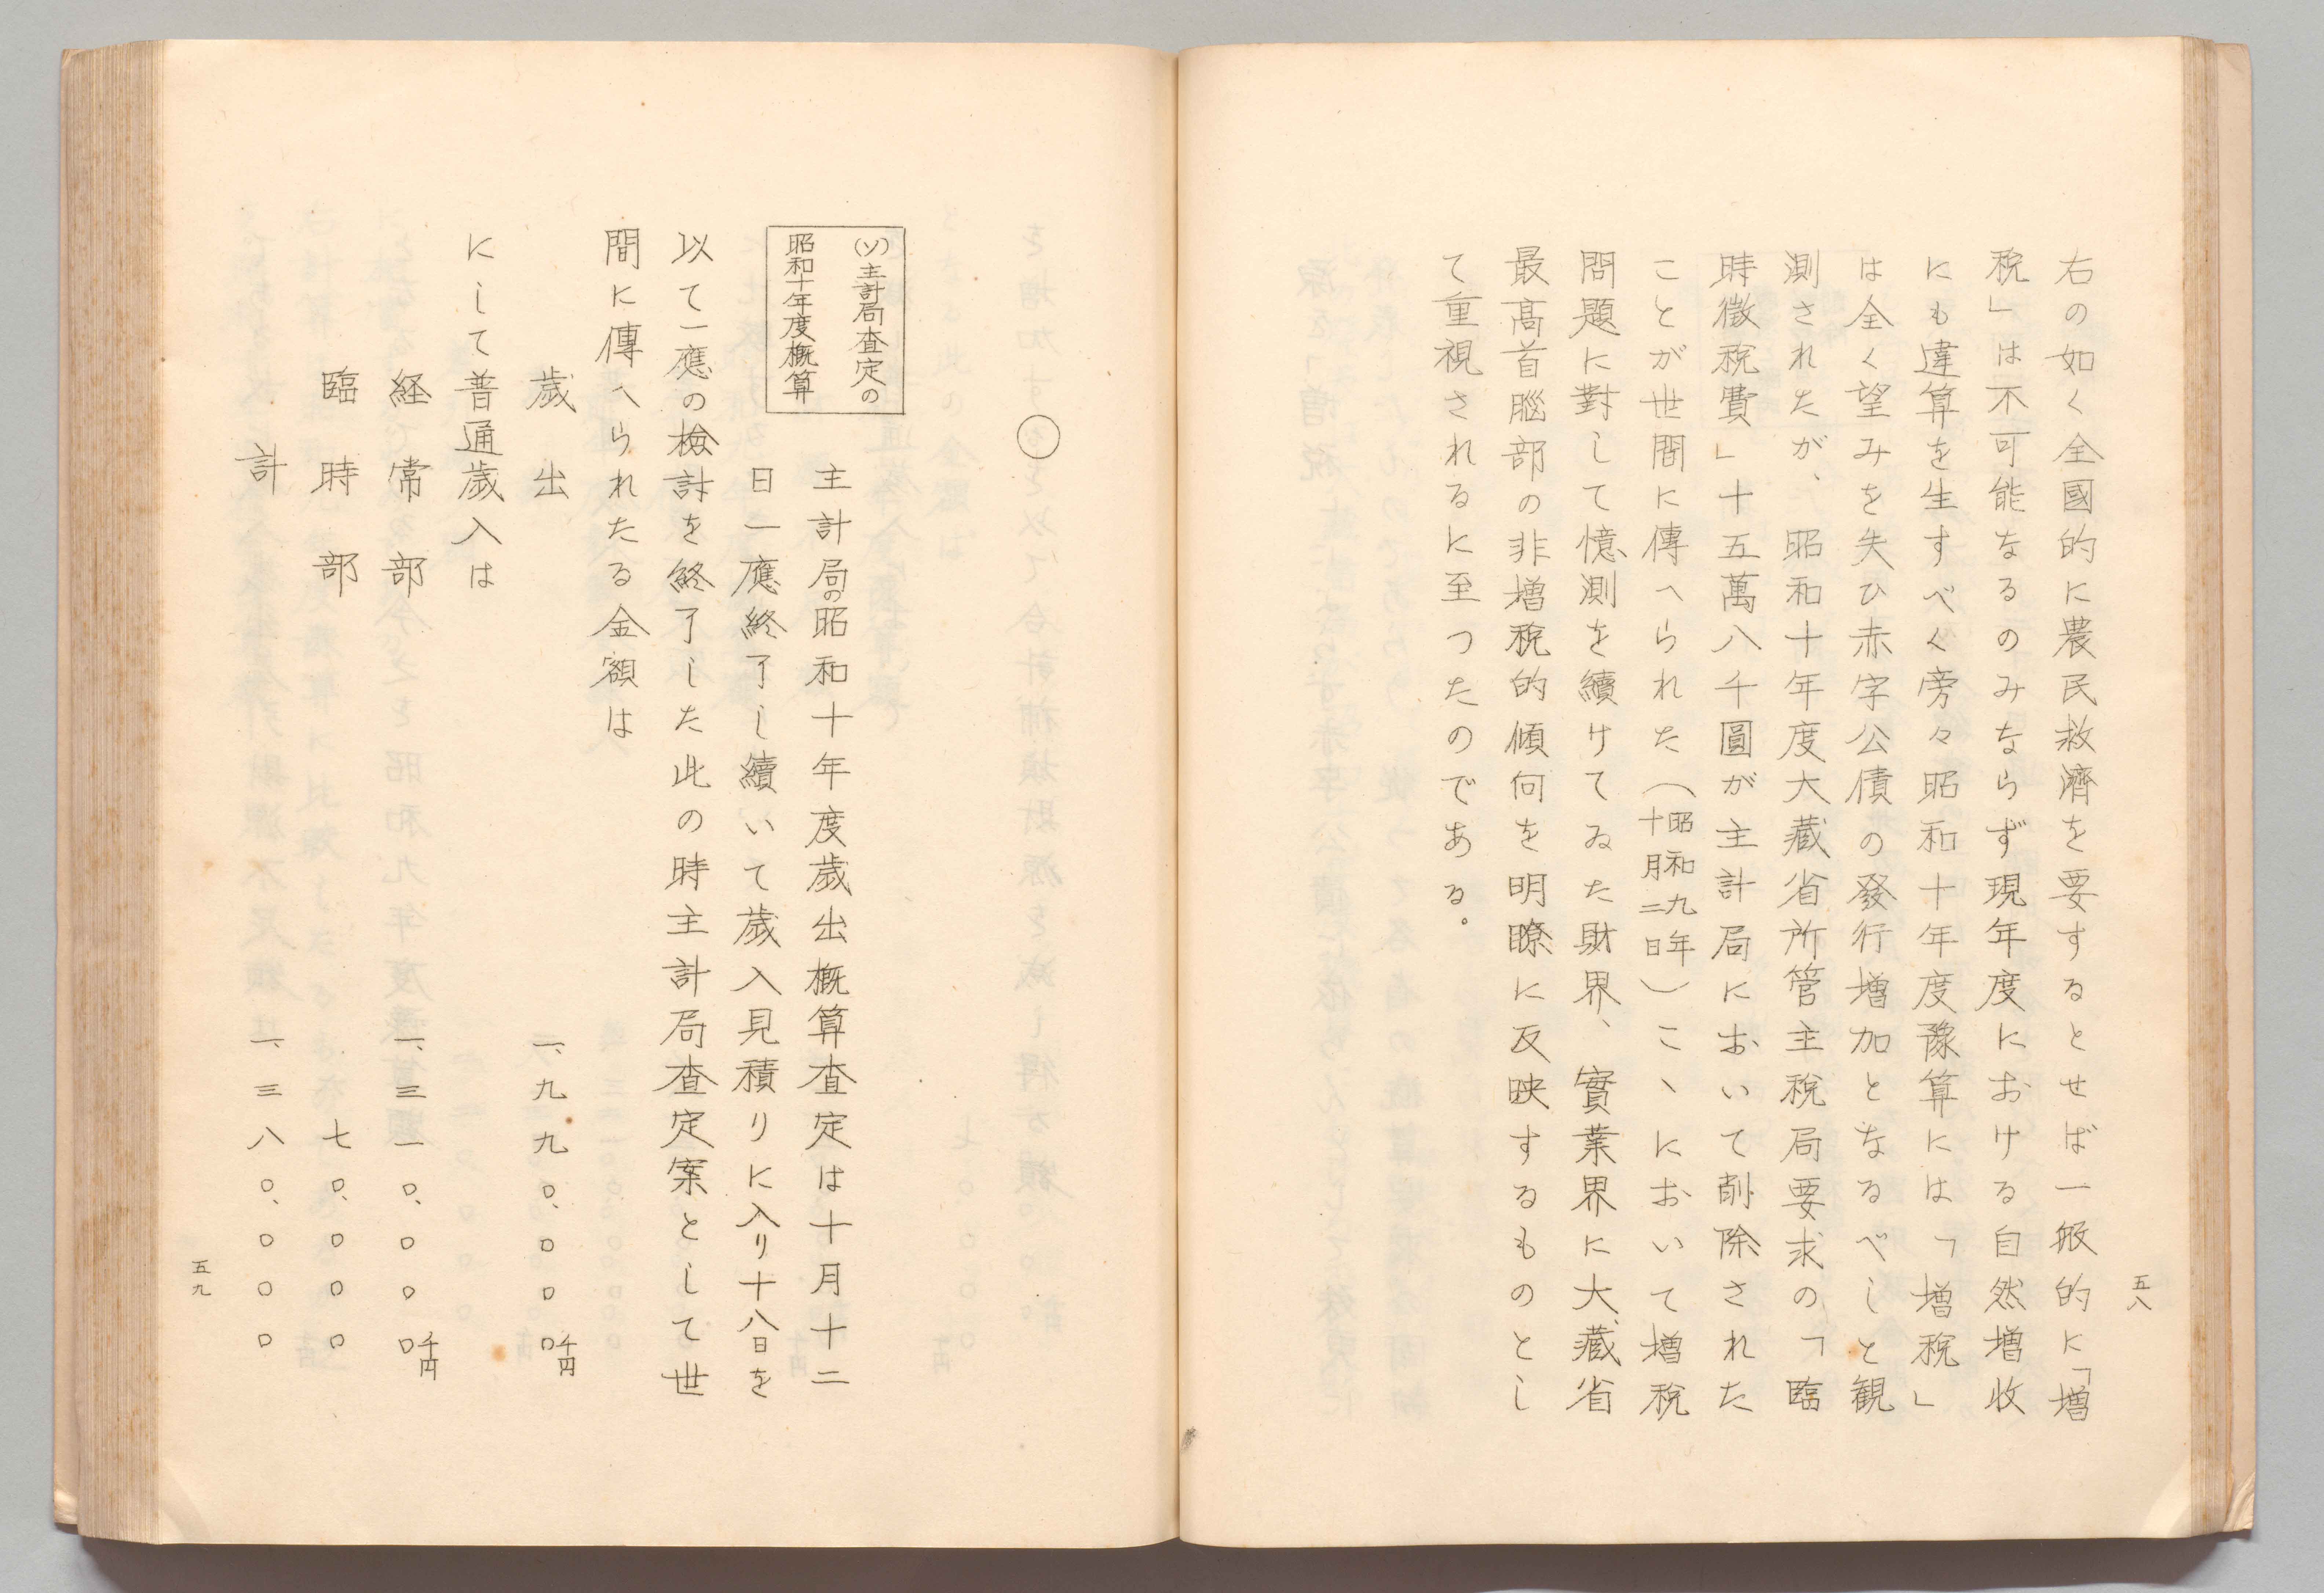 五八
右の如く全國的に農民救濟を要するとせば一般的に「増
税」は不可能なるのみならず現年度における自然増收
にも違算を生すべく旁々昭和十年度豫算には「増税」
は全く望みを失ひ赤字公債の發行増加となるべしと観
測されたが、昭和十年度大藏省所管主税局要求の「臨
時徴税費」十五萬八千圓が主計局において削除された
ことが世間に傳へられた(昭和九年十月二日)こゝにおいて増税
問題に對して憶測を續けてゐた財界、實業界に大藏省
最高首腦部の非増税的傾向を明瞭に反映するものとし
て重視されるに至つたのである。
○
(ソ)主計局査定の
昭和十年度概算
主計局の昭和十年度歳出概算査定は十月十二
日一應終了し續いて歳入見積りに入り十八日を
以て一應の檢討を終了した此の時主計局査定案として世
間に傳へられたる金額は
歳出 一、九九〇、〇〇〇千円
にして普通歳入は
経常部 一、三一〇、〇〇〇千円
臨時部 七〇、〇〇〇
計 一、三八〇、〇〇〇
五九